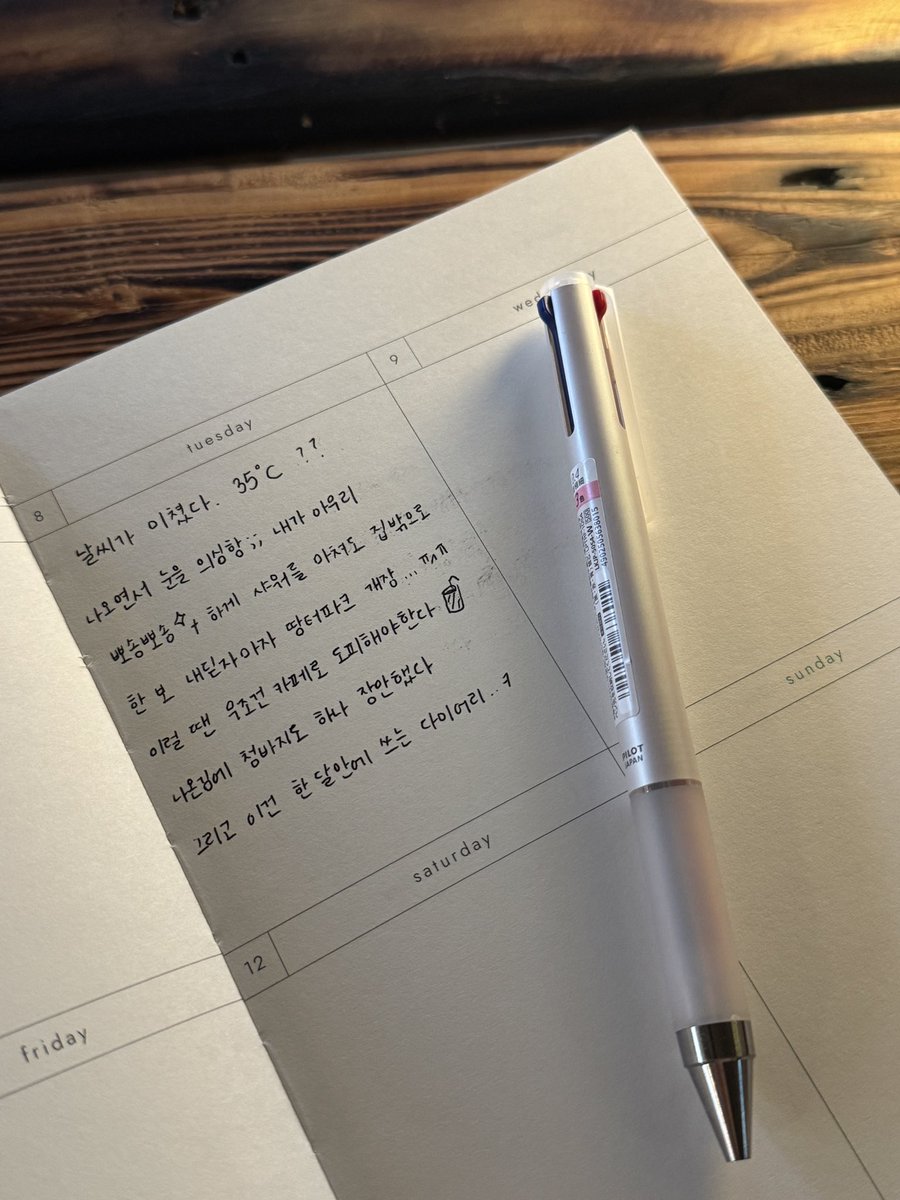 tuesday
8
날씨가 미쳤다. 35°C ??
나오면서 눈을 의심함;; 내가 아무리
뽀송뽀송✧₊ 하게 샤워를 마쳐도 집밖으로
한 보 내딛자마자 땀터파크 개장... ㅠㅠ
이럴 땐 무조건 카페로 도피해야한다
나온김에 청바지도 하나 장만했다
그리고 이건 한달만에 쓰는 다이어리..ㅋ
9
wed
y
sunday
12
saturday
friday
PILOT
JAPAN